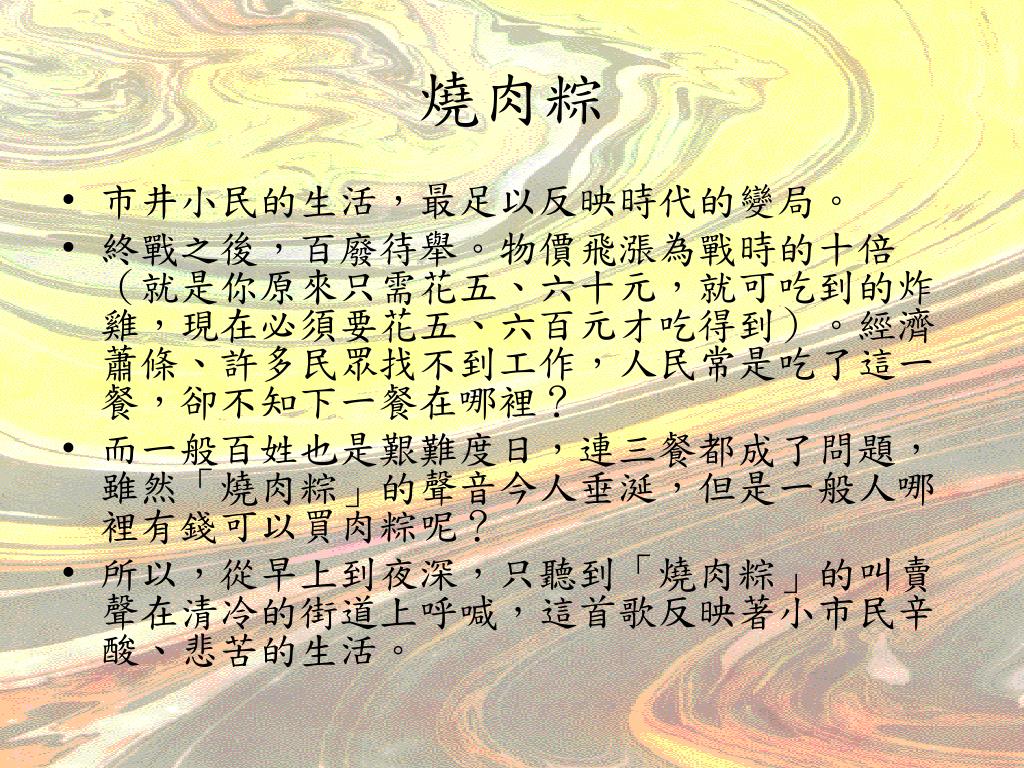 燒肉粽
• 市井小民的生活，最足以反映時代的變局。
• 終戰之後，百廢待舉。物價飛漲為戰時的十倍
（就是你原來只需花五、六十元，就可吃到的炸
雞，現在必須要花五、六百元才吃得到）。經濟
蕭條、許多民眾找不到工作，人民常是吃了這一
餐，卻不知下一餐在哪裡？
• 而一般百姓也是艱難度日，連三餐都成了問題，
雖然「燒肉粽」的聲音今人垂涎，但是一般人哪
裡有錢可以買肉粽呢？
• 所以，從早上到夜深，只聽到「燒肉粽」的叫賣
聲在清冷的街道上呼喊，這首歌反映著小市民辛
酸、悲苦的生活。